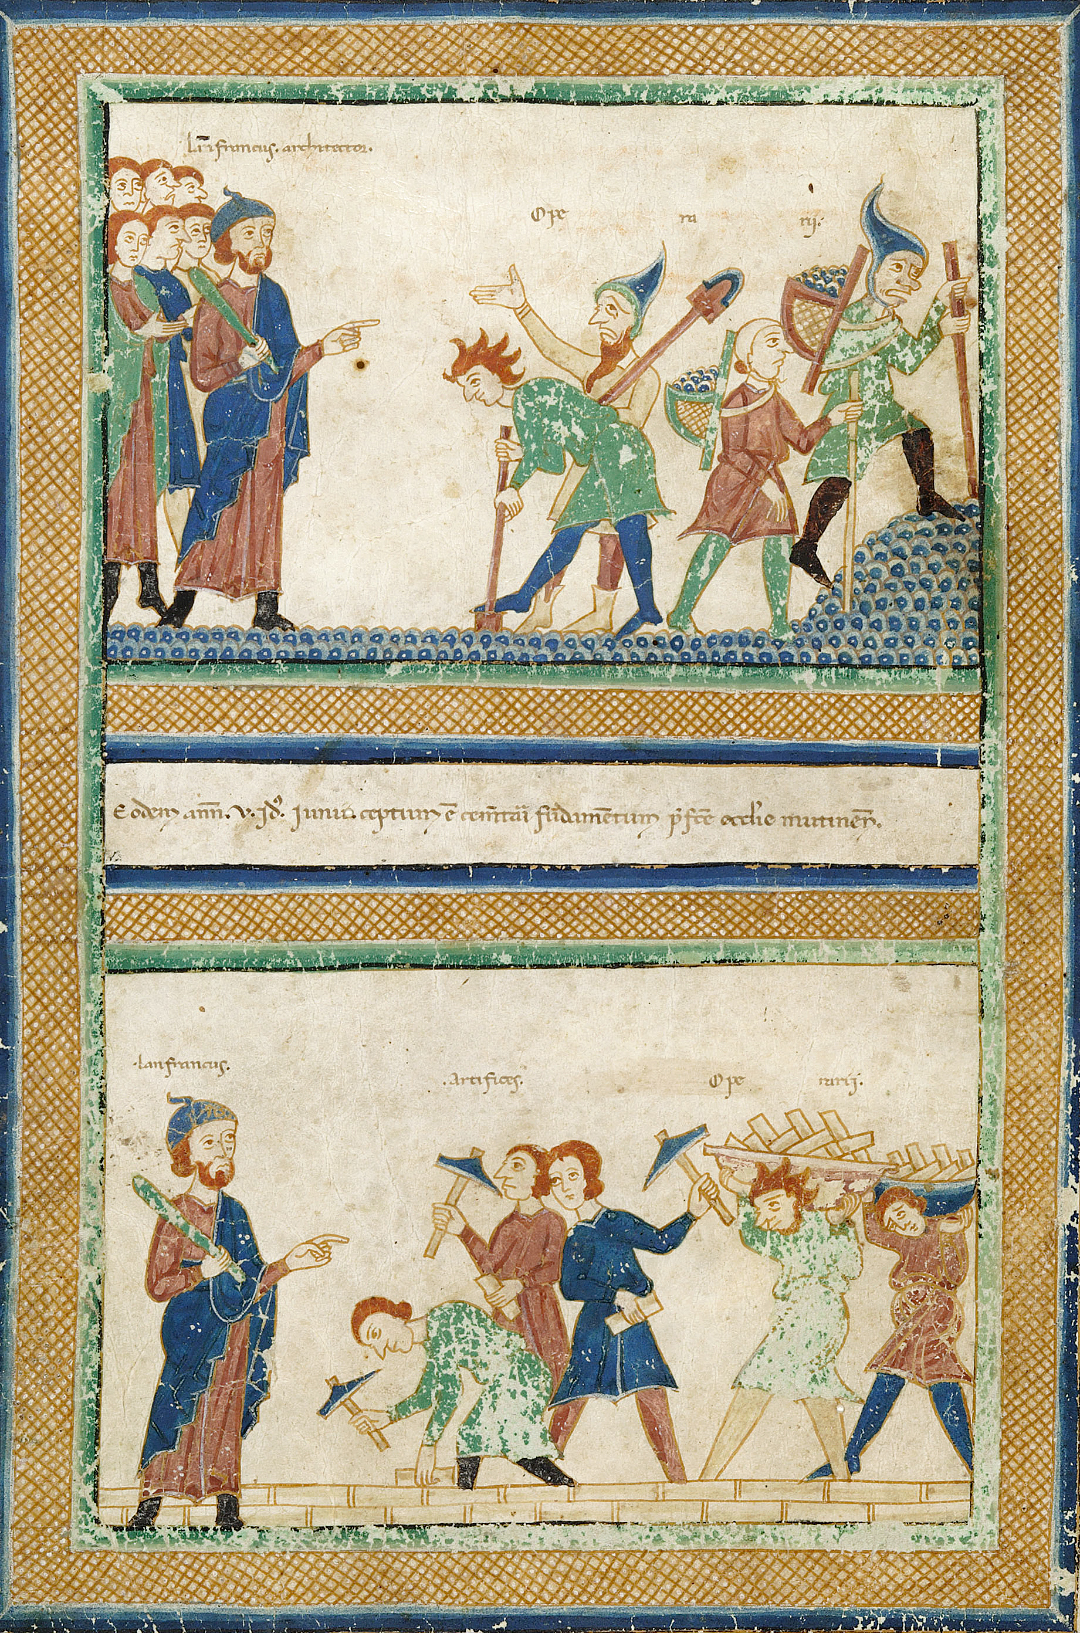 Lāfrancus. architector.
Ope ra rij.
Eodem anñ. v. Jd⁹. Junii. ceptum ē cem̄tari fūdam̄entum p̄fc̄e eccl̄ie mutineñ.
.lanfrancus.
.Artifices.
Ope rarij.